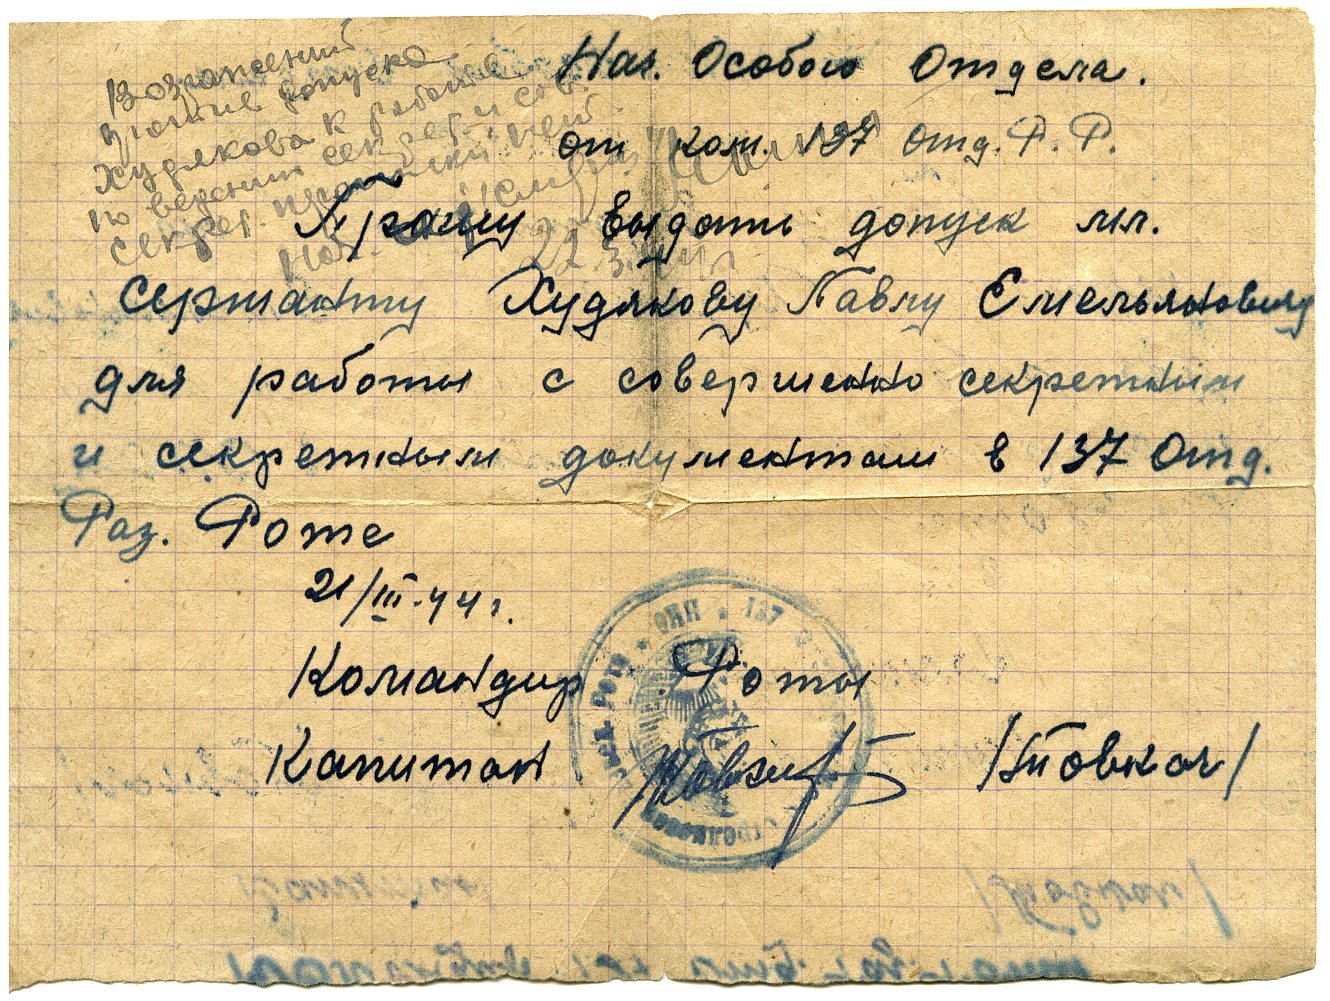 Возражений
против допуска
Худякова к работе
по ведению секрет. и сов.
секрет. переписки нет.
Нач. "Смерш"
22.3.44 г
Нач. Особого Отдела.
от ком. 137 отд. Р. Р.
Прошу выдать допуск мл.
сержанту Худякову Павлу Емельяновичу
для работы с совершенно секретным
и секретным документам в 137 Отд.
Раз. Роте
21/III-44 г.
Командир Роты
Капитан /Товкач/
НКО 137
рота